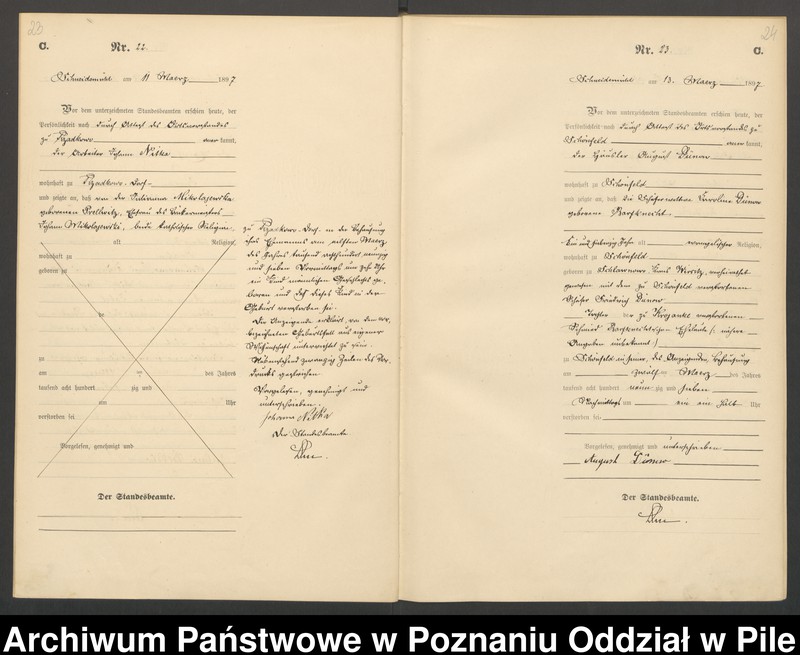 23
C.
Nr. 22
Schneidemühl am 11 Maerz 1897
Vor dem unterzeichneten Standesbeamten erschien heute, der
Persönlichkeit nach durch Attest des Ortsvorstandes
zu kannt,
der Arbeiter Johann Nitka
wohnhaft zu Dorf
und zeigte an, daß von der Julianna Mikolajewska
geborenen Ehefrau des
Johann Mikolajewski, beide katholischer Religion
alt Religion,
wohnhaft zu
geboren zu
zu
am des Jahres
tausend acht hundert zig und
um Uhr
verstorben sei
Vorgelesen, genehmigt und
Der Standesbeamte.
zu Dorf in der Behausung
ihres Ehemannes am achten Maerz
des Jahres tausend achthundert neunzig
und sieben Vormittags um zehn Uhr
ein Kind männlichen Geschlechts ge-
boren und daß dieses Kind in der
Geburt verstorben sei.
Der Anzeigende erklärt, von dem vor-
bezeichneten Geburtsfall aus eigener
Wissenschaft unterrichtet zu sein.
zwanzig Zeilen des Vor-
drucks gestrichen
Vorgelesen, genehmigt und
unterschrieben.
Johann Nitka
Der Standesbeamte
24
Nr. 23
C.
Schneidemühl am 13. Maerz 1897
Vor dem unterzeichneten Standesbeamten erschien heute, der
Persönlichkeit nach durch Attest des Ortsvorstands zu
Schönfeld kannt,
der Häusler August Dünow
wohnhaft zu Schönfeld
und zeigte an, daß die Karoline Dünow
geborene
Jahr alt evangelischer Religion,
wohnhaft zu Schönfeld
geboren zu Kreis Wirsitz, verheirathet
gewesen mit dem zu Schönfeld verstorbenen
Schäfer Dünow
Tochter der zu Krojanke verstorbenen
Schmied Eheleute (nähere
Angaben unbekannt)
zu Schönfeld in seiner, des Anzeigenden, Behausung
am zwölften Maerz des Jahres
tausend acht hundert neunzig und sieben
Nachmittags um ein ein halb Uhr
verstorben sei
Vorgelesen, genehmigt und unterschrieben
August Dünow
Der Standesbeamte.
Archiwum Państwowe w Poznaniu Oddział w Pile